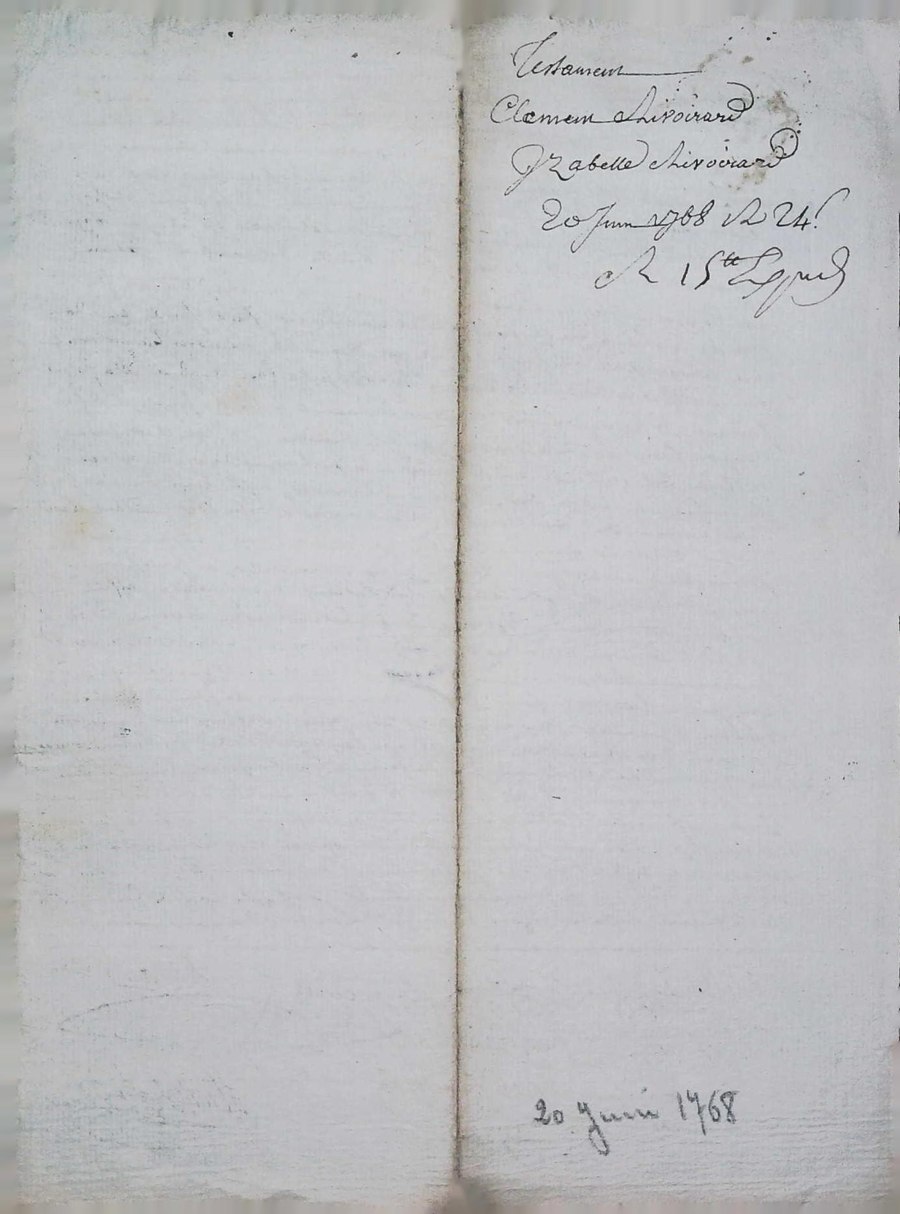 Testament
Clemem Rivoirard
Yzabelle Rivoirard
20 Juin 1768 R 24 s
R 15 tt
20 Juin 1768